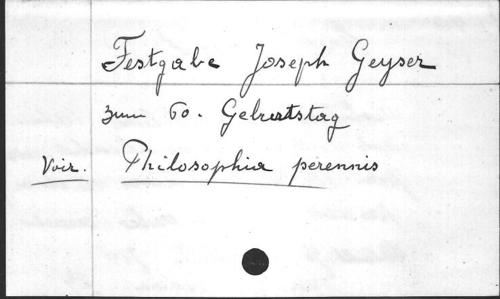 Festgabe Joseph Geyser
zum 60. Geburtstag
Voir. Philosophia perennis